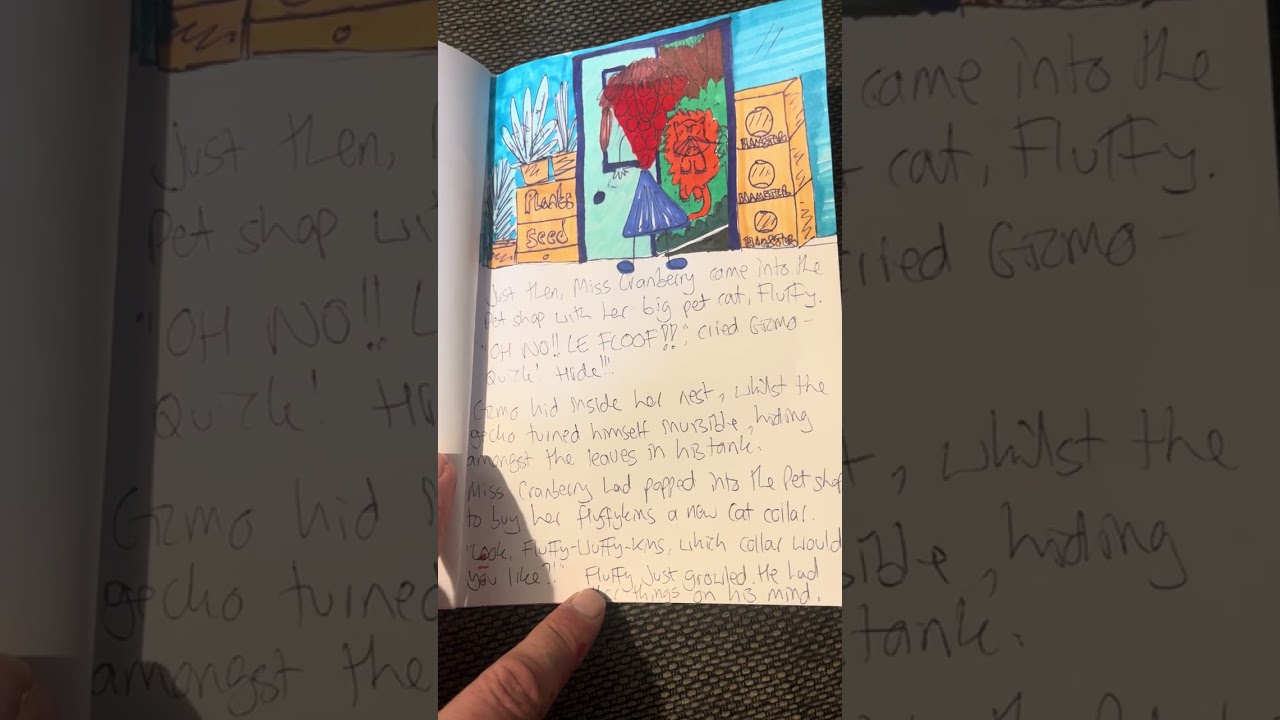 HAMSTER
HAMSTER
HAMSTER
Plants
Seed
Just then, Miss Cranberry came into the
Pet shop with her big pet cat, Fluffy.
"OH NO!! LE FLOOF!!", cried Gizmo -
Quick! Hide!!"
Gizmo hid inside her nest, whilst the
gecko turned himself invisible, hiding
amongst the leaves in his tank.
Miss Cranberry had popped into the Pet shop
to buy her fluffykins a new cat collar.
"Look, Fluffy-Wuffy-kins, which collar would
you like?!" Fluffy just growled. He had
things on his mind.